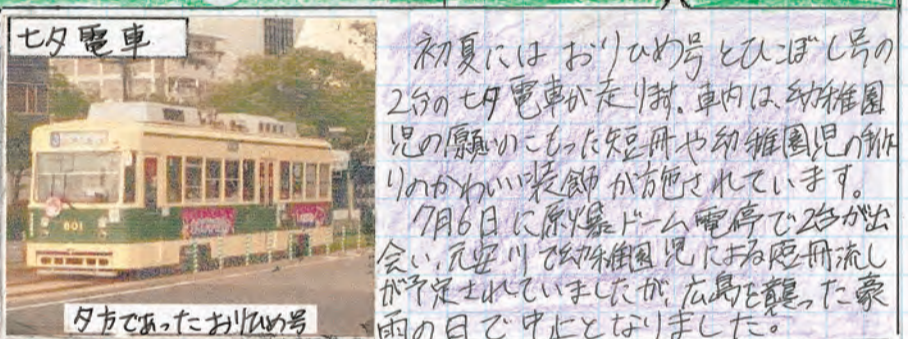 七夕電車
801
夕方であったおりひめ号
初夏には おりひめ号とひこぼし号の
2台の七夕電車が走ります。車内は、幼稚園
児の願いのこもった短冊や幼稚園児の手作
りのかわいい装飾が施されています。
7月6日に原爆ドーム電停で2台が出
会い、元安川で幼稚園児による短冊流し
が予定されていましたが、広島を襲った豪
雨の日で中止となりました。